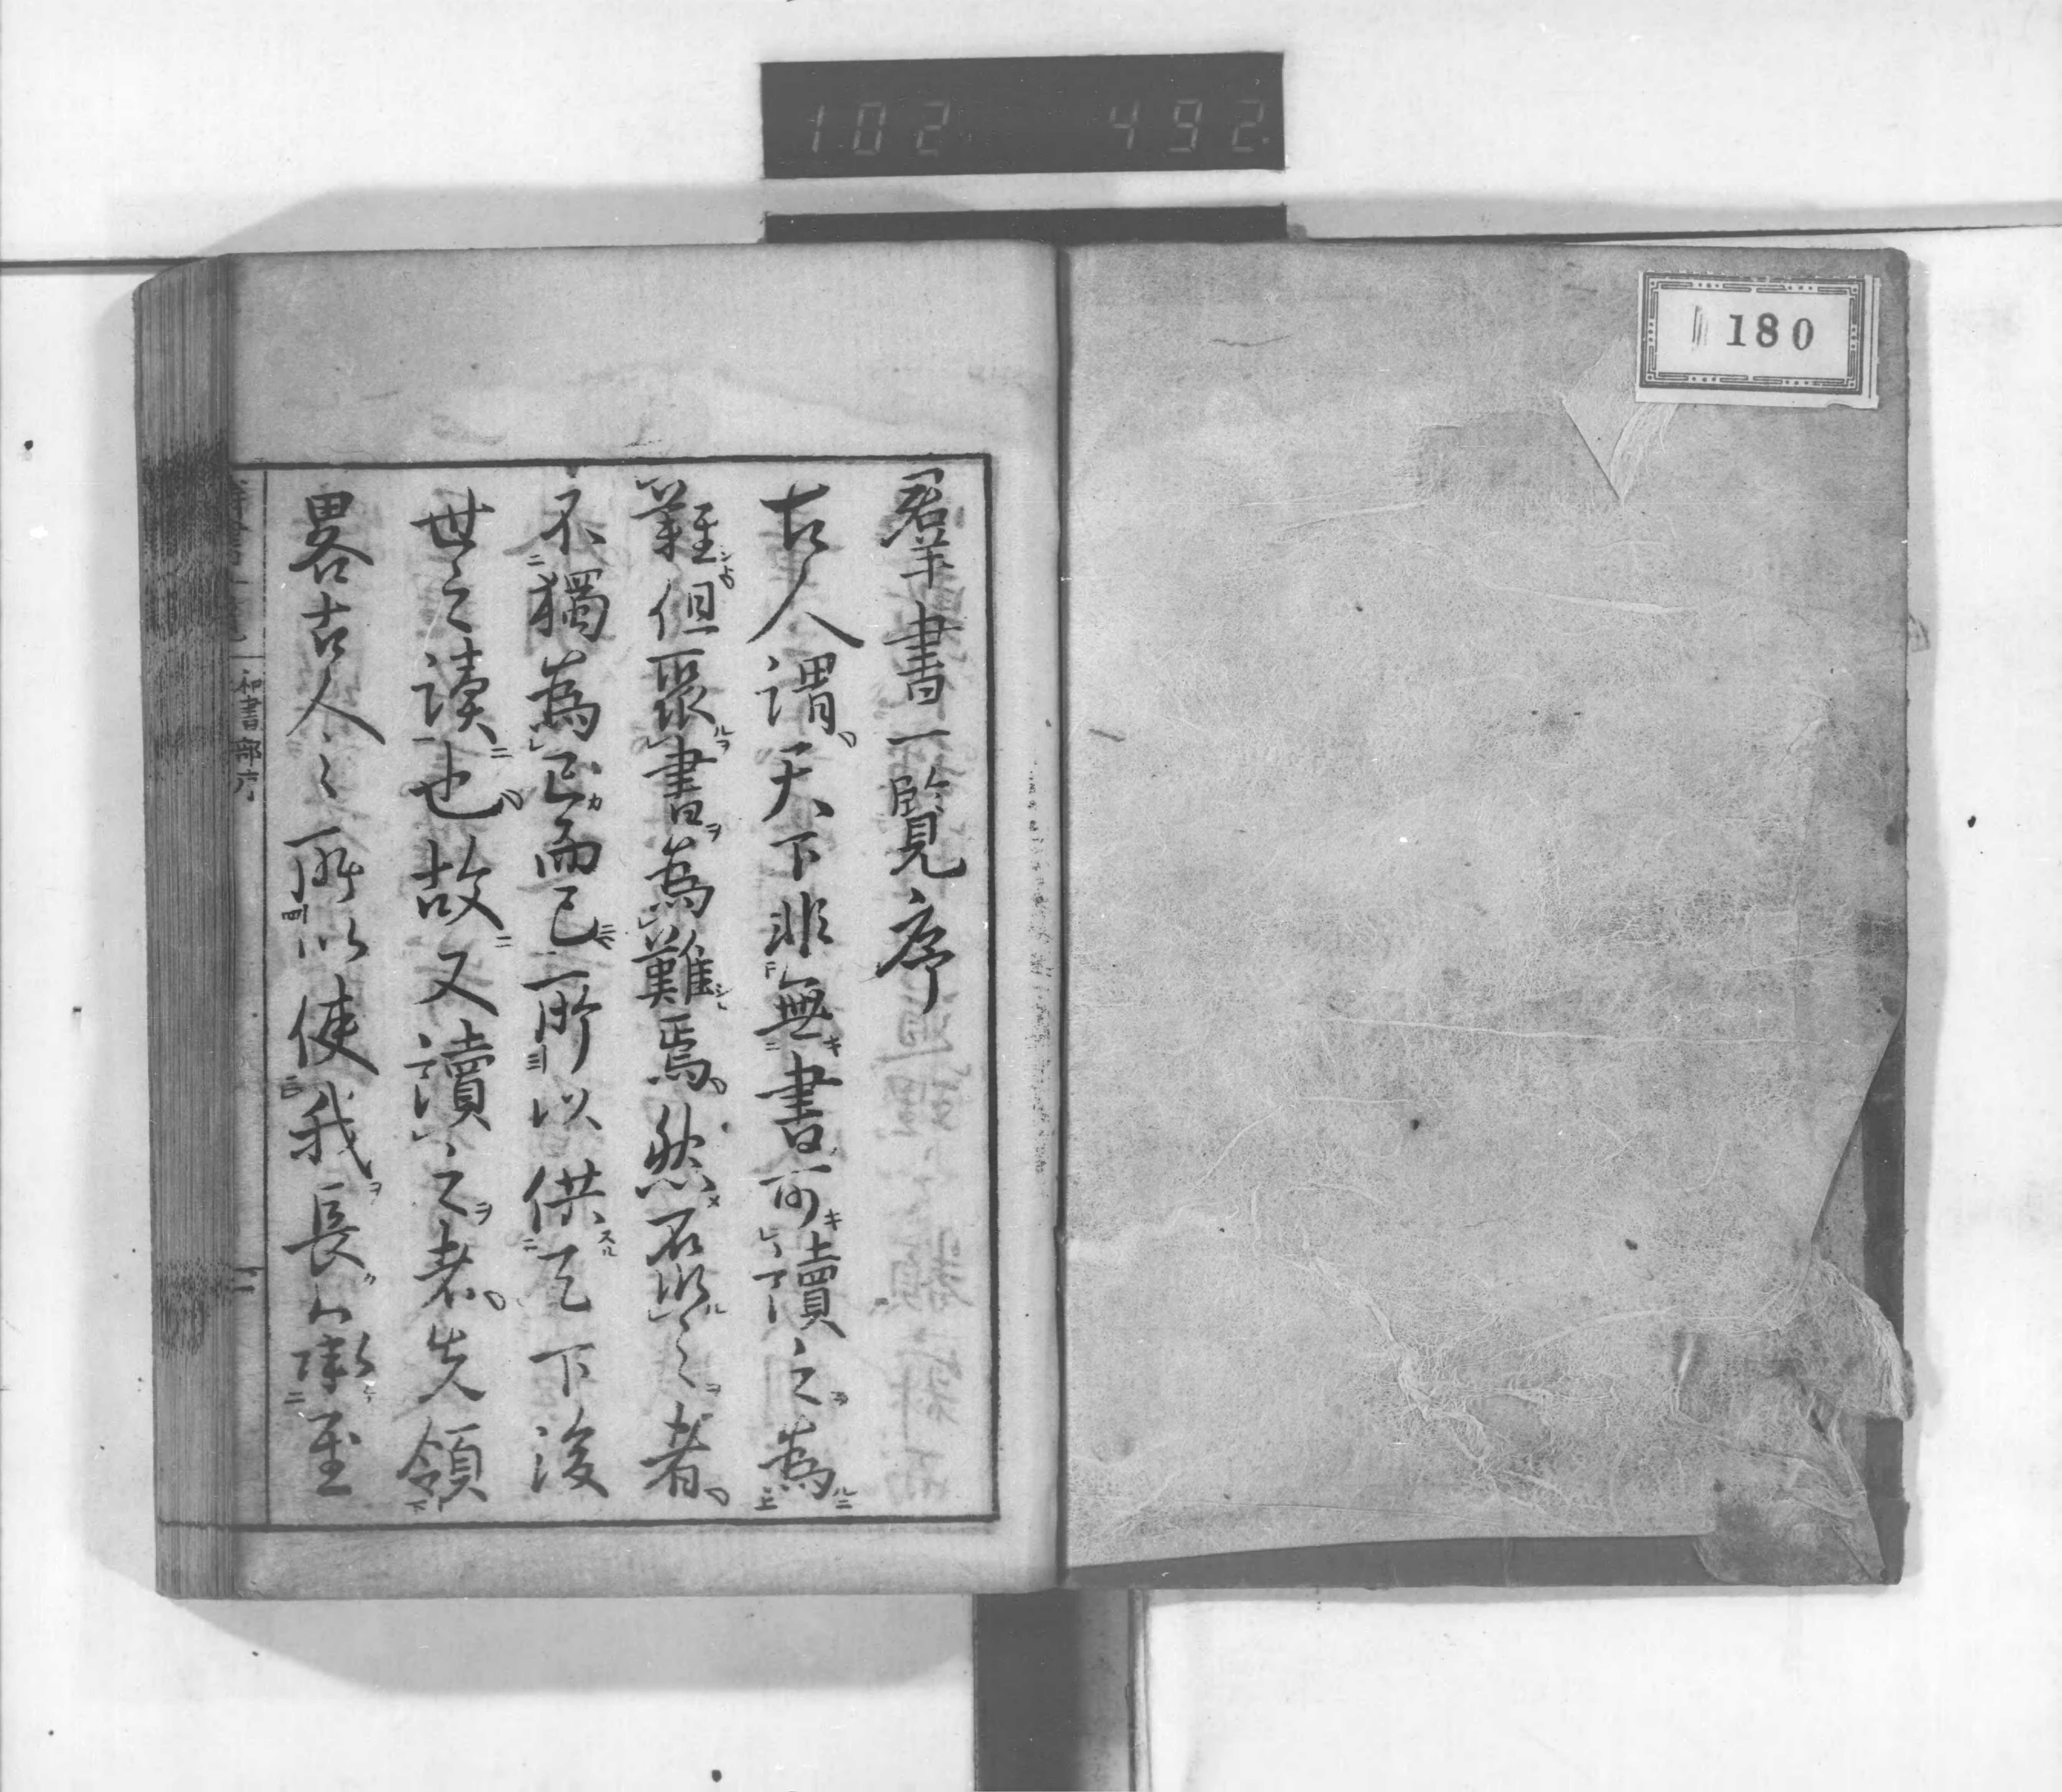 102 492
180
羣書一覽序
古人謂天下非無書可讀之爲
難但聚書爲難焉然不以之者
不獨爲己而已所以供天下後
世之讀也故又讀之者先領
畧古人之所以使我長 至
和書部序